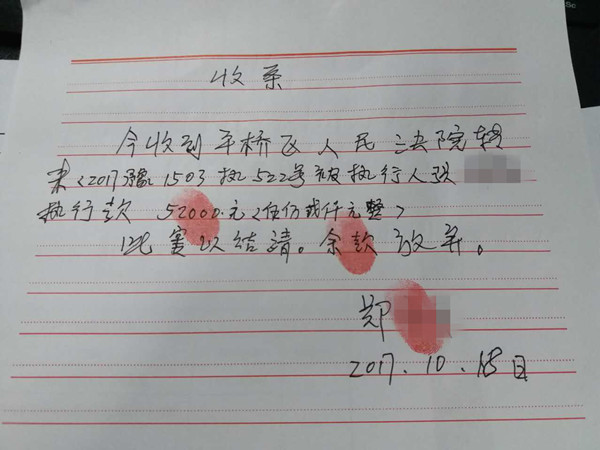 收条
今收到平桥区人民法院转
来(2017豫1503执522号被执行人
执行款 52000.元(伍仟元整)
此案以结清。余款放弃。
郑
2017.10.18日